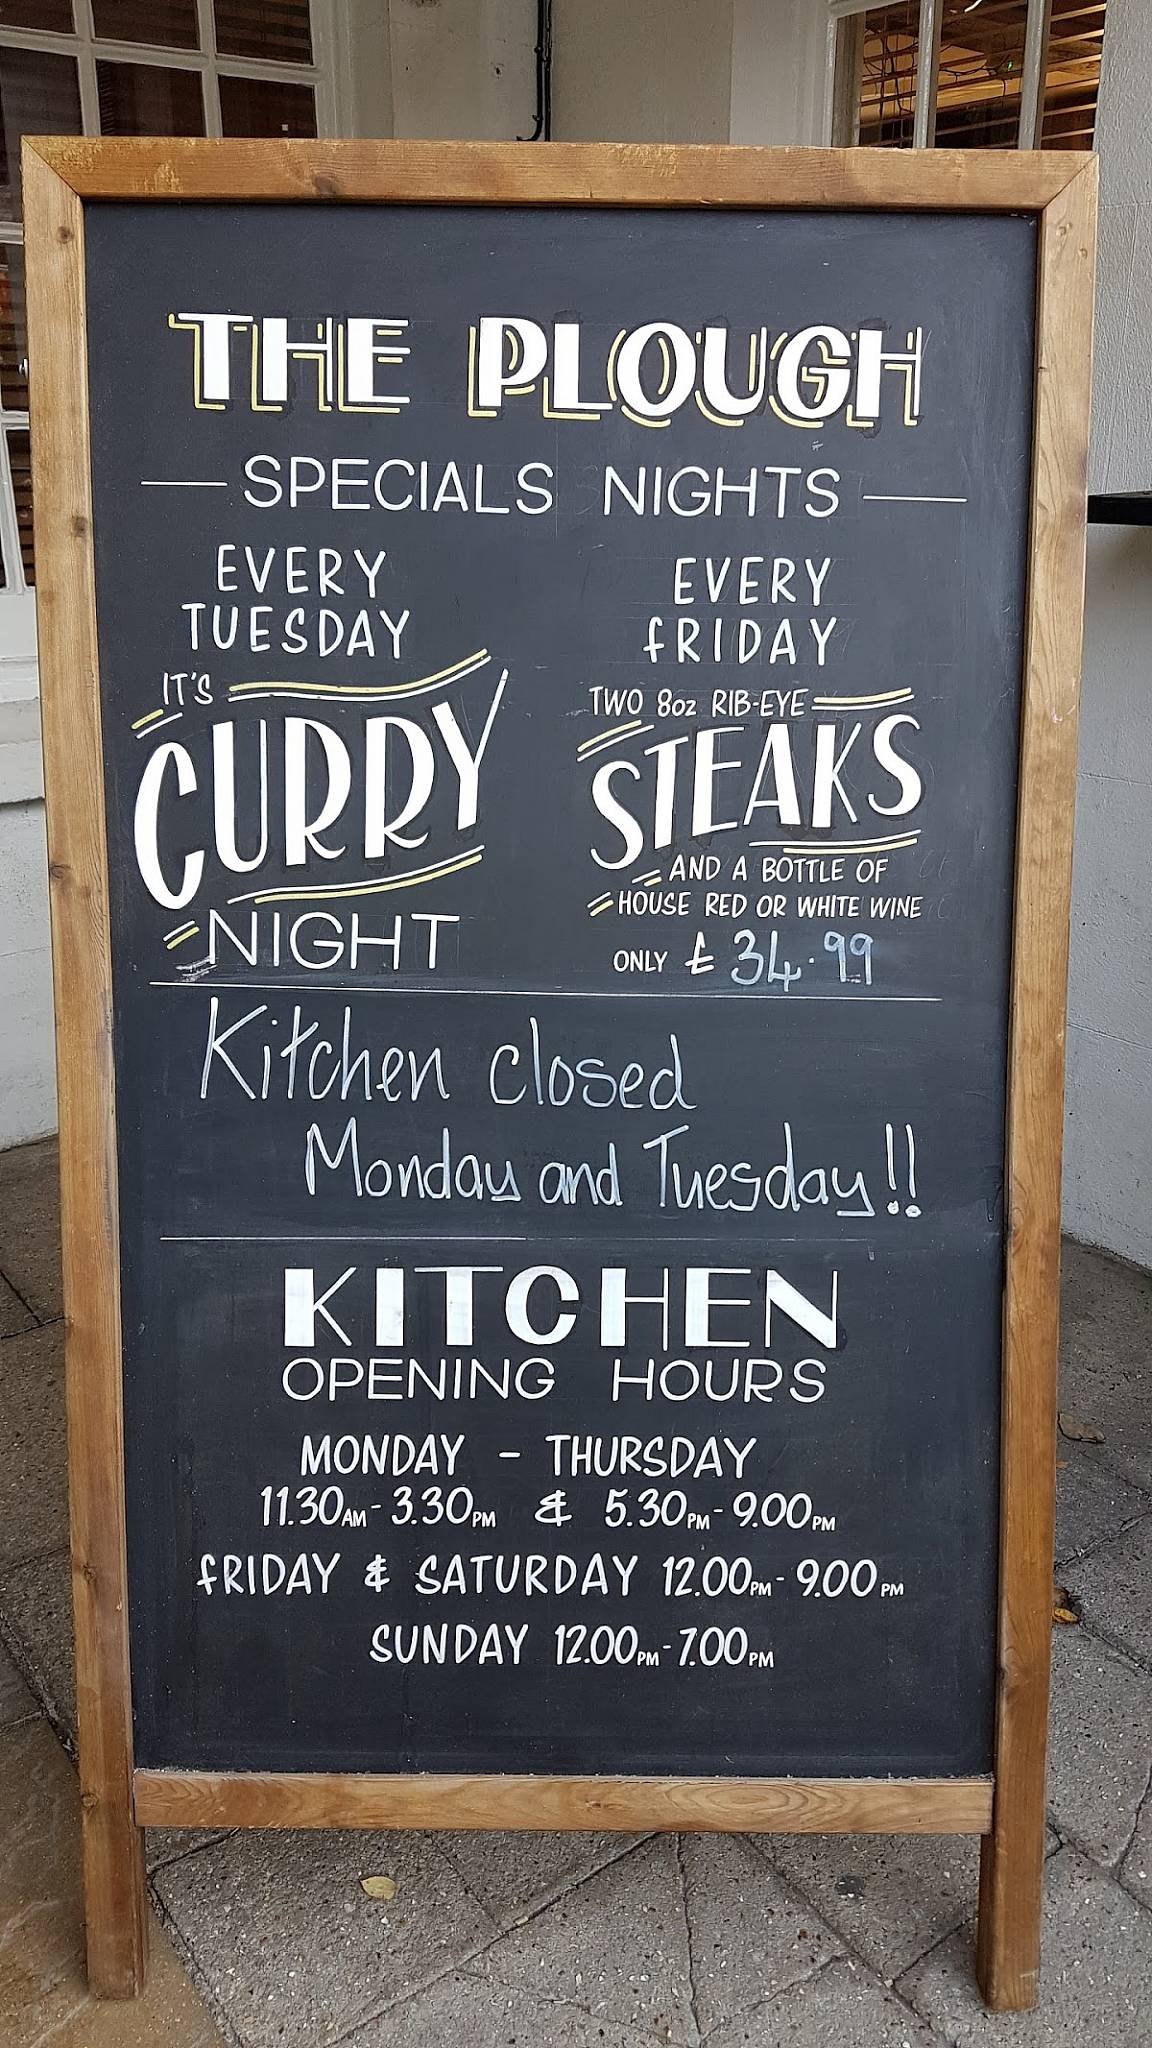 THE PLOUGH
SPECIALS NIGHTS
EVERY
TUESDAY
IT'S
CURRY
NIGHT
EVERY
FRIDAY
TWO 8oz RIB-EYE
STEAKS
AND A BOTTLE OF
HOUSE RED OR WHITE WINE
ONLY £ 34.99
Kitchen closed
Monday and Tuesday!!
KITCHEN
OPENING HOURS
MONDAY - THURSDAY
11.30AM - 3.30PM & 5.30PM - 9.00PM
FRIDAY & SATURDAY 12.00PM - 9.00PM
SUNDAY 12.00PM - 7.00PM